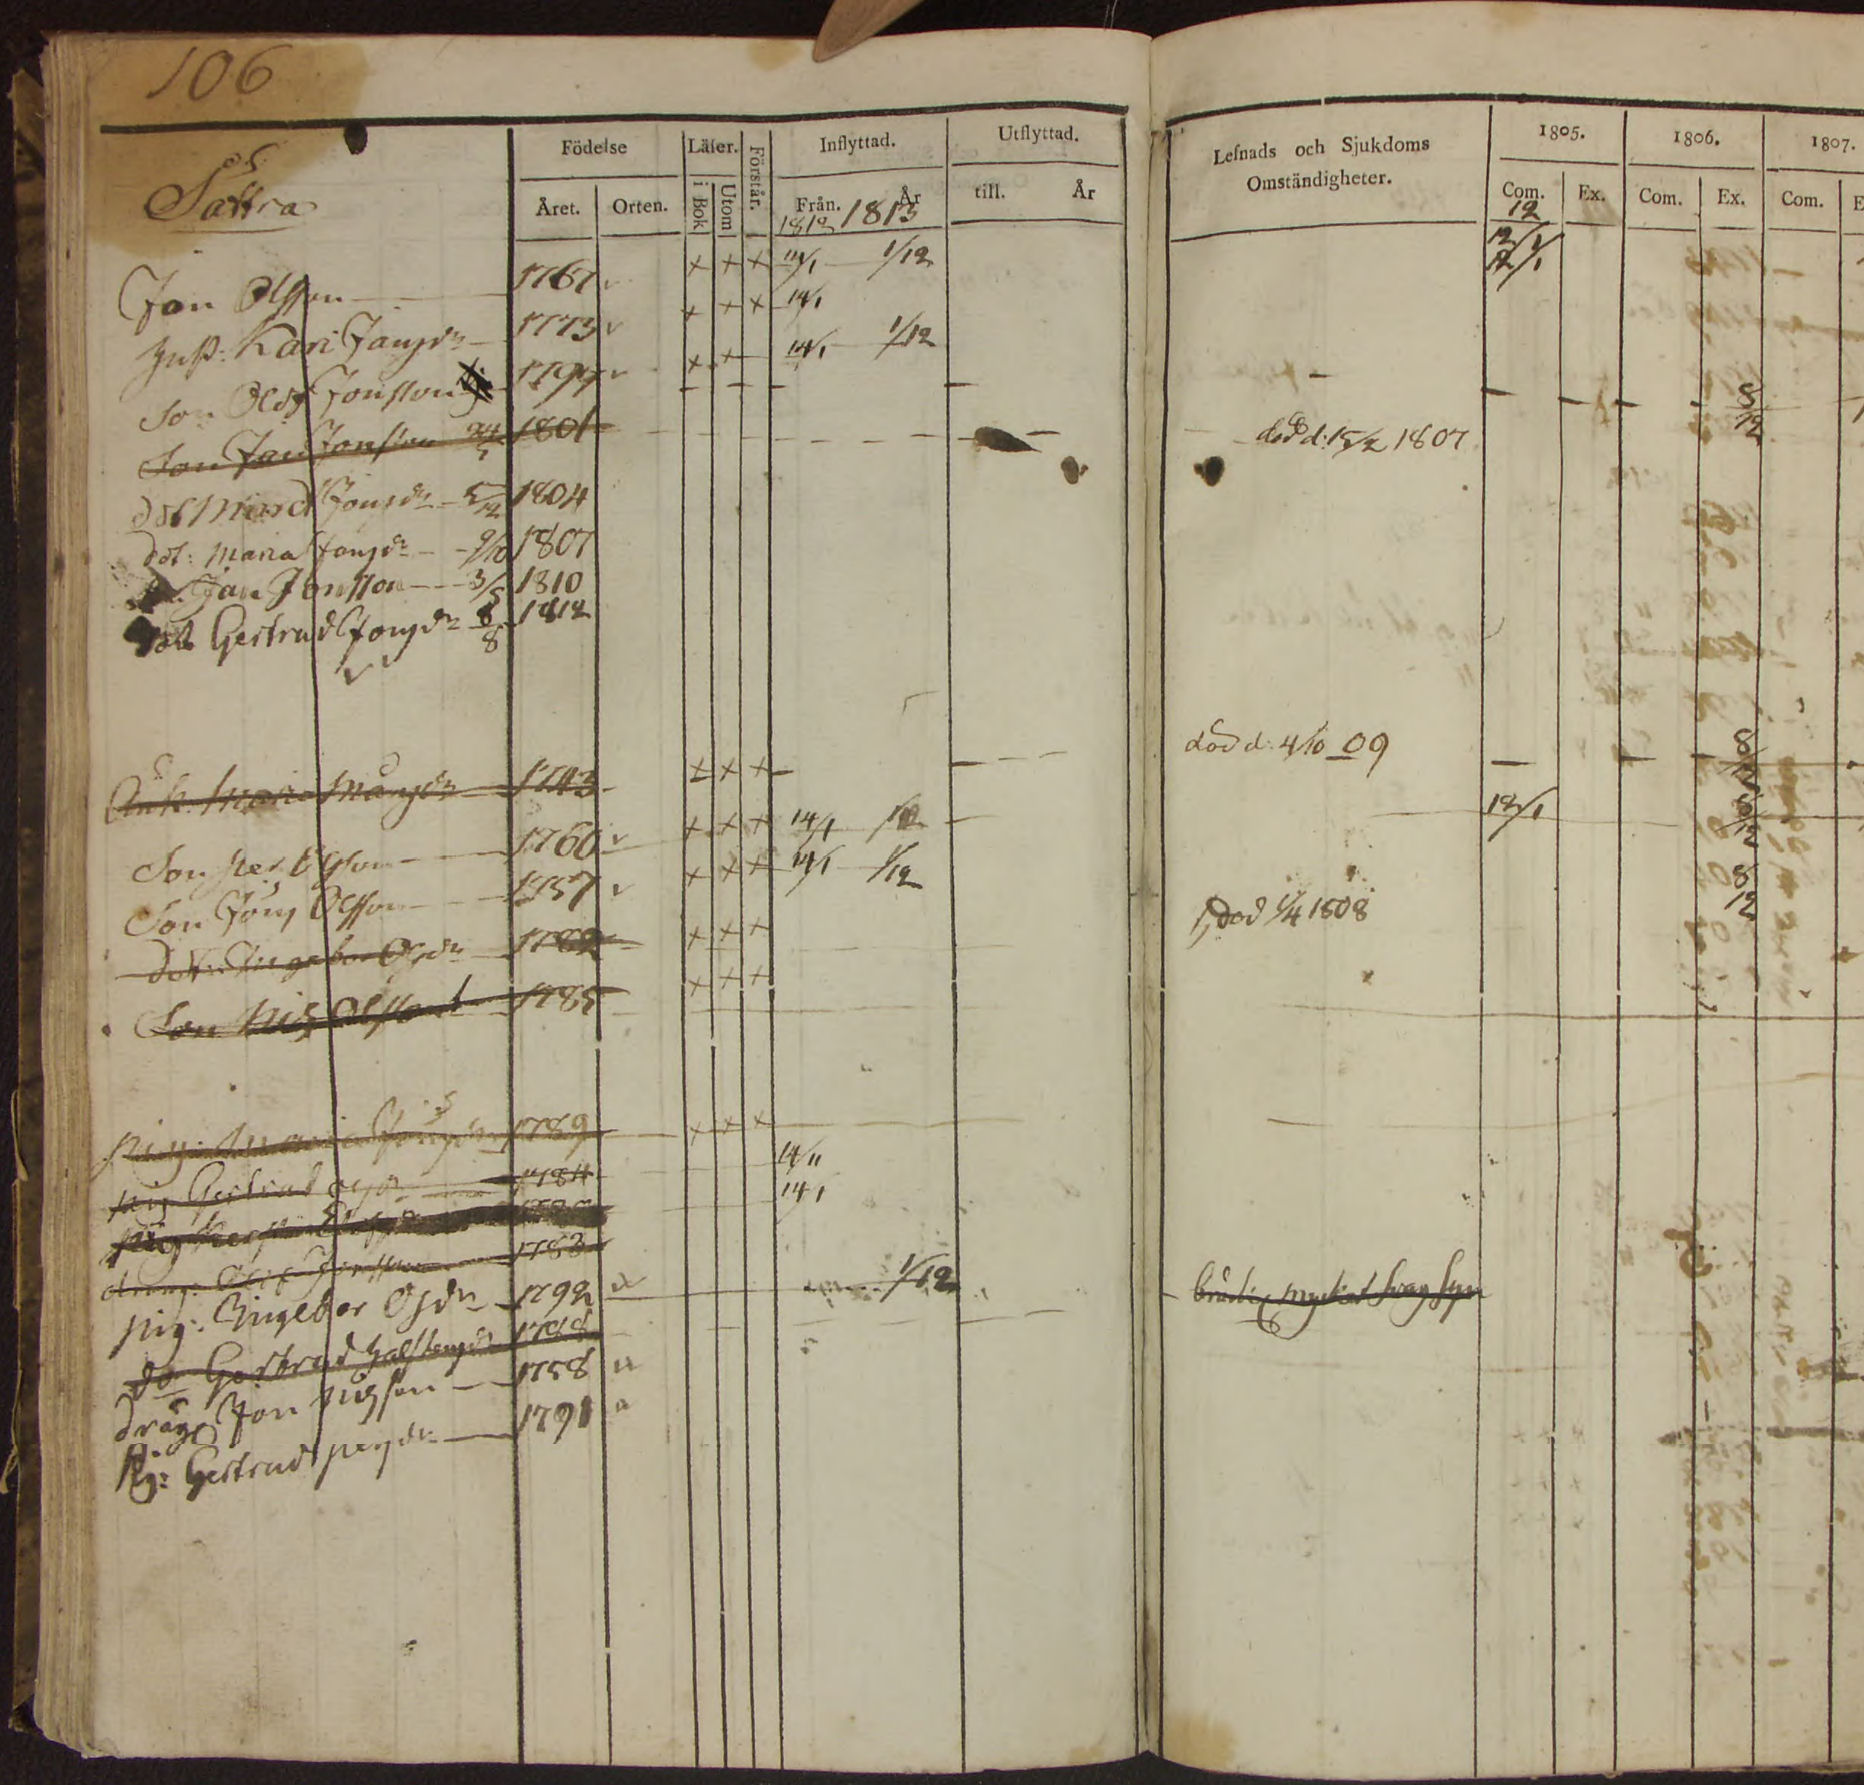 106
Sättra
Födelse Läser. Förstår. Inflyttad. Utflyttad.
Året. Orten. i Bok Utom Från. År till. År
1812 1813
Lefnads och Sjukdoms Omständigheter. 1805. 1806. 1807.
Com. Ex. Com. Ex. Com. E
12
Jon Olsson 1767 x x x 14/1 1/12 12/1
12/1
Hust: Kari Jansdr 1773 x x x 14/1
Son Olof Jonsson 1799 x x 14/1 1/12
Son Jan Jonsson 24/5 1801 död d: 15/2 1807 8/12
dot Marit Jonsdr 5/12 1804
Dot: Maria Jonsdr 9/10 1807
Jan Jonsson 3/5 1810
dot Gertrud Jonsdr 8/8 1812
Änk: Maria Månsdr 1743 x x x död d: 4/10 09
Son Per Olsson 1760 x x x 14/1 1/12 12/1 8/12
Son Jöns Olsson 1757 x x x 14/1 1/12 8/12
dot: Ingebor Olsdr 1782 x x x död 1/4 1808
Son Nils Olsson 1785 x x x
Pig: Maria Jönsdr 1789 x x x
Pig Gertrud 1784 14/11
Pig Kerstin 14/1
dräng: Olof Jonsson 1783
pig: Ingebor Olsdr 1792 1/12 mycket svag syn
do Gertrud Halstensdr 1788
Dräng Jon Nilsson 1758
Pig: Gertrud Persdr 1791